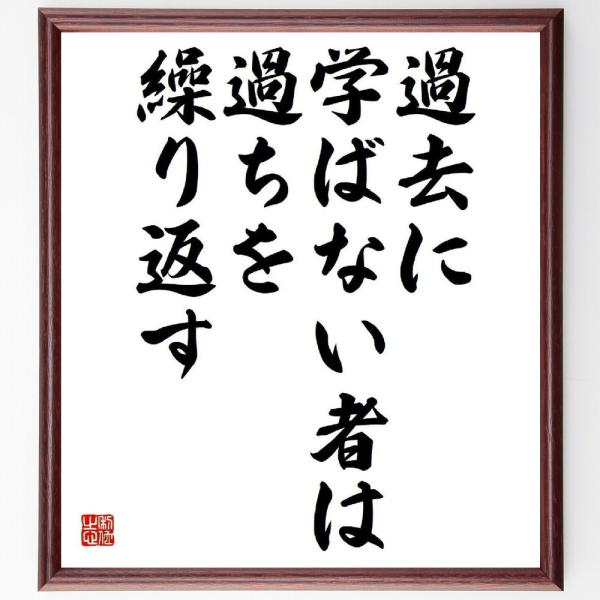 過去に
学ばない者は
過ちを
繰り返す